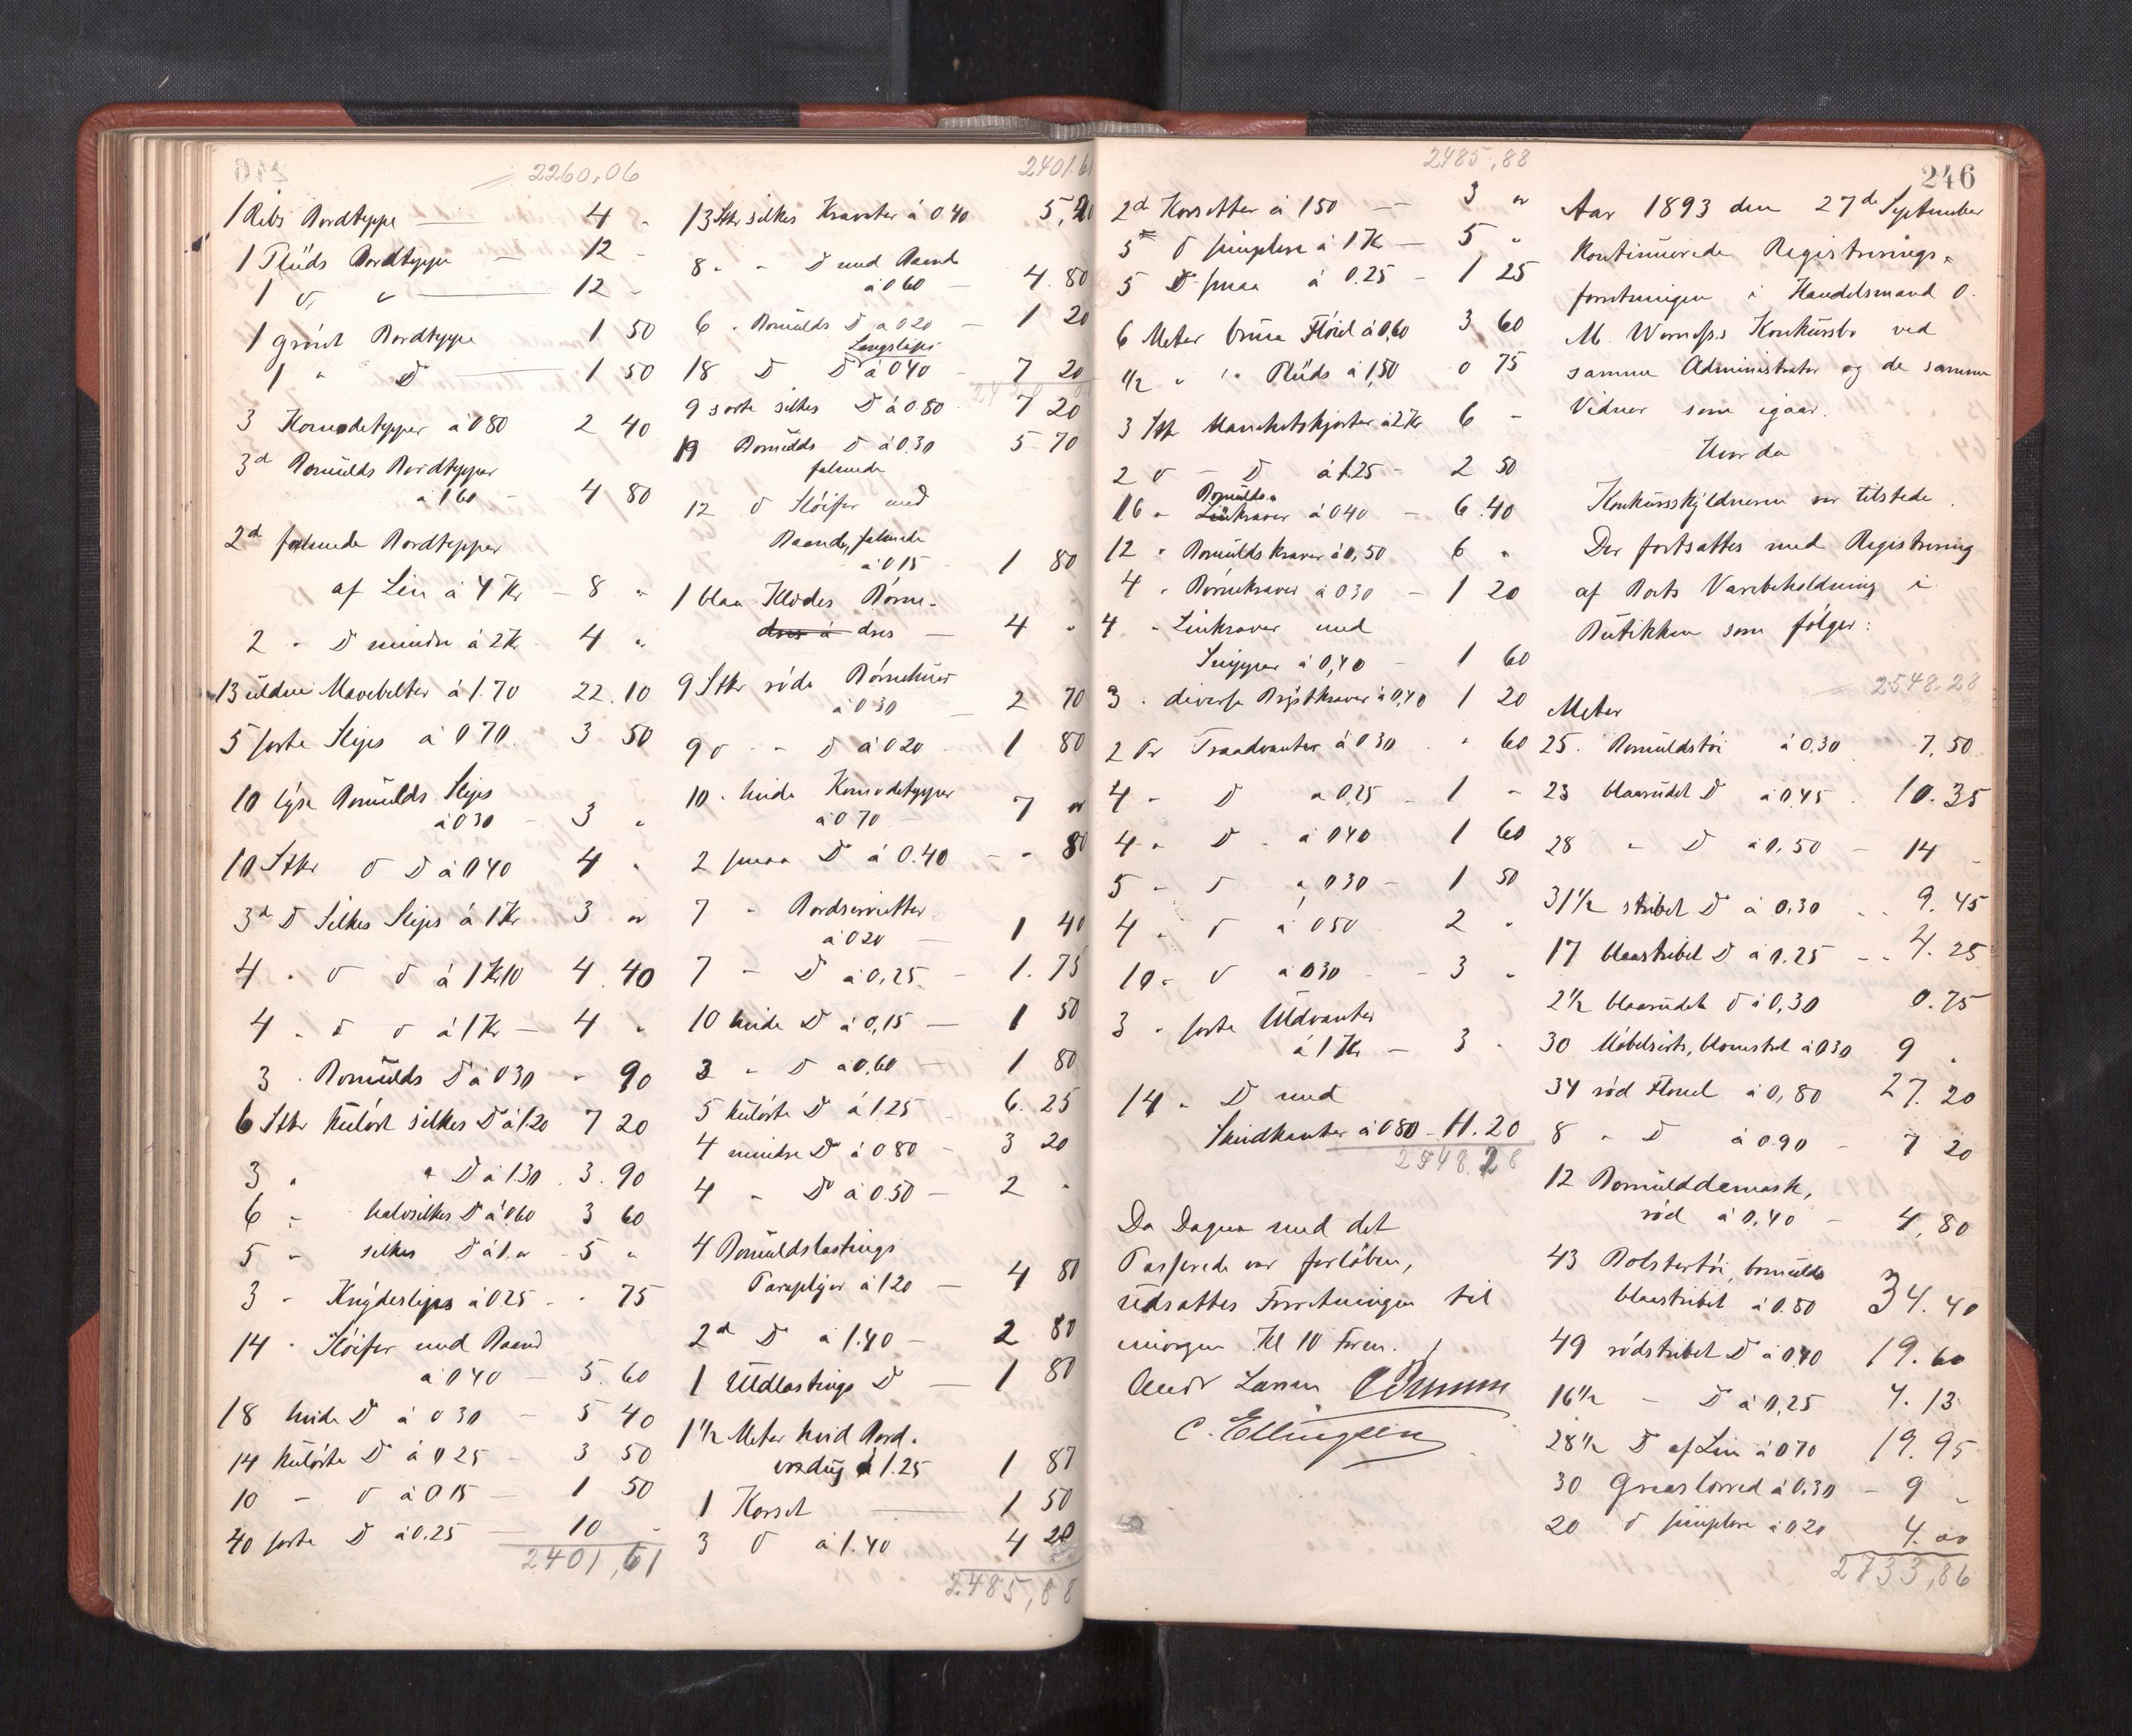 2260,06
1 Ribs Bordteppe — 4 "
1 Plüds Bordteppe — 12 -
1 do " — 12 -
1 grönt Bordteppe 1 50
1 " Do — 1 50
3 Komodetepper à 0 80 2 40
3 d Bomulds Bordtepper
à 1 60 - 4 80
2 d falmede Bordtepper
af Lin à 4 Kr - 8 "
2 - Do mindre à 2 Kr 4 "
13 uldne Mavebelter à 1.70 22.10
5 sorte Slips à 0 70 3 50
10 lyse Bomulds Slips
à 0 30 - 3 "
10 Stkr do Do à 0 40 4 "
3 d Do Silkes Slips à 1 Kr 3 "
4 - do do à 1 Kr 10 4.40
4 - do do à 1 Kr — 4 "
3 - Bomulds Do à 0 30 " 90
6 Stkr kulört silkes Do à 1.20 7 20
3 " " Do à 1.30 3.90
6 - halvsilkes Do à 0.60 3 60
5 - silkes Do à 1. " - 5 "
3 - Knydeslips à 0.25 - - 75
14 - Slöifer med Baand
à 0 40 - 5.60
18 hvide Do à 0 30 - 5 40
14 kulörte Do à 0 25 - 3 50
10 - do à 0 15 - 1 50
40 sorte Do à 0.25 — 10 -
2401,61
2401.61
13 Stkr silkes Kravater à 0 40 5,20
8 - - Do med Baand
à 0 60 - 4.80
6 - Bomulds Do à 0 20 - 1 20
Langslips
18 Do Do à 0 40 - 7 20
9 sorte silkes Do à 0.80 7 20
19 Bomulds Do à 0.30 5 70
falmede
12 do Slöifer med
Baand, falmede
à 0 15 - 1 80
1 blaa Klædes Börne-
dres à dres — 4 "
9 Stkr röde Börnehuer
à 0 30 - 2 70
9 do - - Do à 0 20 1 80
10 - hvide Komodetepper
à 0 70 - 7 "
2 smaa Do à 0.40 - - 80
7 - Bordservietter
à 0 20 - 1 40
7 - Do à 0,25 - 1.75
10 hvide Do à 0,15 - 1 50
3 - Do à 0,60 - 1 80
5 kulörte Do à 1.25 6.25
4 mindre Do à 0 80 - 3 20
4 - Do à 0.50 - 2 "
4 Bomuldslastings
Paraplyer à 1 20 - 4 80
2 d Do à 1.40 - 2 80
1 Uldlastings Do — 1 80
1 1/2 Meter hvid Bord-
voxdug à 1.25 1 87
1 Korset — 1 50
3 do à 1.40 4 20
2485,88
2485,88
246
2 d Korsetter à 1 50 — 3 "
5 " do simplere à 1 Kr — 5 "
5 Do smaa à 0.25 - 1 25
6 Meter brun Flöiel à 0,60 3 60
1/2 " " Plüds à 1,50 0 75
3 Stkr Manchetskjorter à 2 Kr 6 -
2 do - Do à 1.25 - 2 50
Bomulds-
16 - Linkraver à 0 40 - 6.40
12 - Bomuldskraver à 0,50 6 "
4 - Börnekraver à 0 30 - 1 20
4 - Linkraver med
Snipper à 0,40 - 1 60
3 - diverse Brystkraver à 0,40 1 20
2 Pr Traadvanter à 0 30 " 60
4 - Do à 0,25 - 1 -
4 - Do - à 0 40 1 60
5 - do à 0 30 - 1 50
4 - do à 0 50 2 "
10 - do à 0 30 - 3 "
3 - sorte Uldvanter
à 1 Kr - 3 "
14 - Do med
Skindkanter à 0 80 - 11.20
2548.28
Da Dagen med det
Passerede var forlöben,
udsattes Forretningen til
imorgen Kl 10 Form.
Andr Larsen
C. Ellingsen
Aar 1893 den 27de September
kontinuerede Registrerings-
forretningen i Handelsmand O.
M. Konkursbo ved
samme Administrator og de samme
Vidner som igaar.
Hvor da
Konkursskyldneren var tilstede.
Der fortsattes med Registrering
af Boets Varebeholdning i
Butikken som fölger:
2548.28
Meter
25. Bomuldstöi à 0,30 7,50
23 blaarudet Do à 0,45 10.35
28 " Do à 0,50 - 14 -
31 1/2 stribet Do à 0.30 - - 9.45
17 blaastribet Do à 0.25 - - 4.25
2 1/2 blaarudet do à 0,30 0.75
30 Möbelsirts, blomstret à 0 30 9 "
34 röd Flonel à 0,80 27.20
8 " Do à 0.90 - 7 20
12 Bomulddamask,
röd à 0,40 - 4,80
43 Bolstertöi, bomulds
blaastribet à 0.80 34.40
49 rödstribet Do à 0,40 19.60
16 1/2 - Do à 0,25 4.13
28 1/2 Do af Lin à 0 70 19.95
30 Graat lerred à 0.30 - 9 -
20 do simplere à 0.20 4.00
2733,86